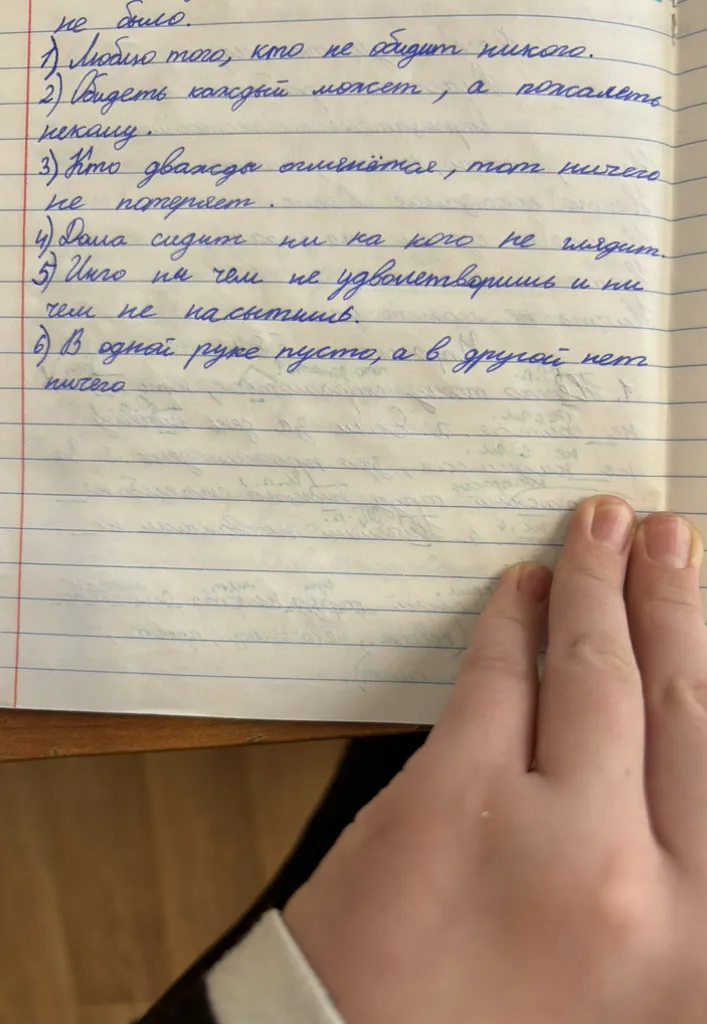 не было.
1) Люблю того, кто не обидит никого.
2) Обидеть каждый может, а пожалеть
некому.
3) Кто дважды оглянётся, тот ничего
не потеряет.
4) Дома сидит ни на кого не глядит.
5) Иного ни чем не удволетворишь и ни
чем не насытишь.
6) В одной руке пусто, а в другой нет
ничего